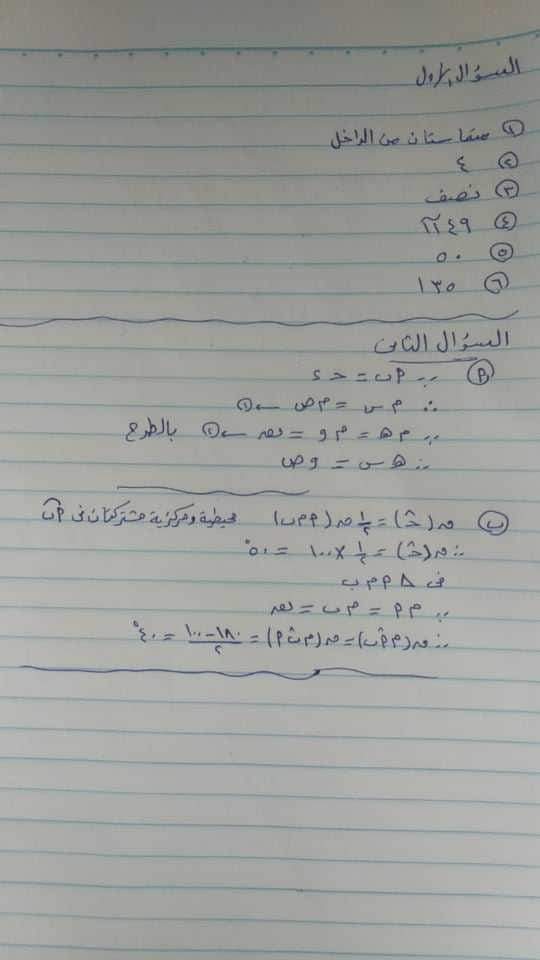 السؤال الأول
١ متماستان من الداخل
٢ ٤
٣ نصف
٤ ٤٩ ط
٥ ٥٠
٦ ١٣٥
السؤال الثانى
أ ∵ أب = حـ ء
∴ م س = م ص ← ①
∵ م هـ = م و = نصـ ← ② بالطرح
∴ هـ س = و ص
ب ق(حـ̂) = ١/٢ ق(أ م ب) محيطية ومركزية مشتركتان فى أب
∴ ق(حـ̂) = ١/٢ × ١٠٠ = ٥٠°
فى Δ أ م ب
∵ م أ = م ب = نصـ
∴ ق(م أ̂ ب) = ق(م ب̂ أ) = (١٨٠ - ١٠٠)/٢ = ٤٠°